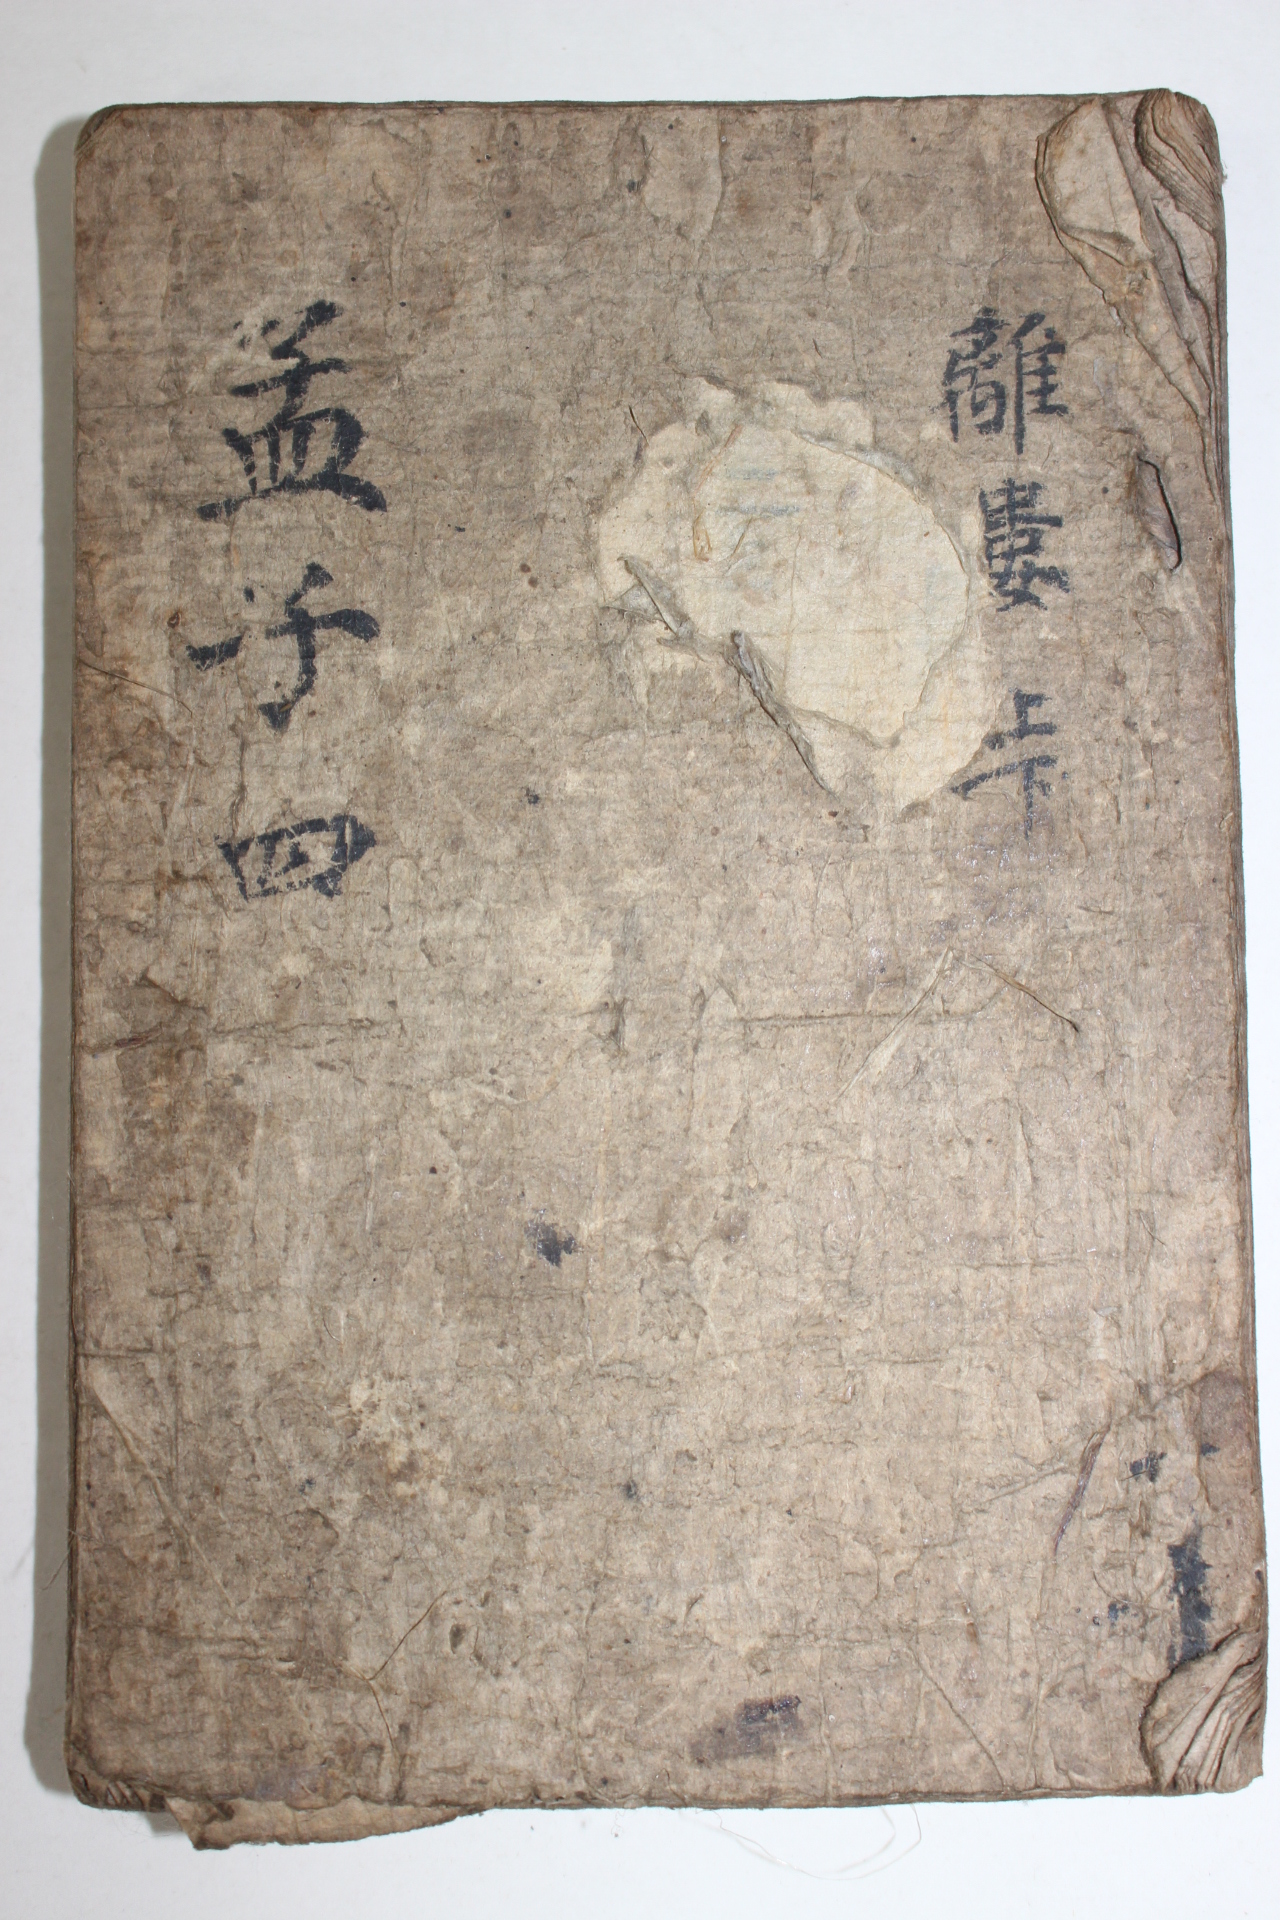 離婁上下
孟子四